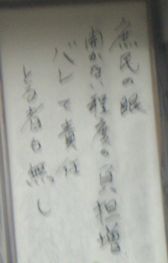 庶民の眼
開かない程度の負担増
バレて責任
とる者も無し